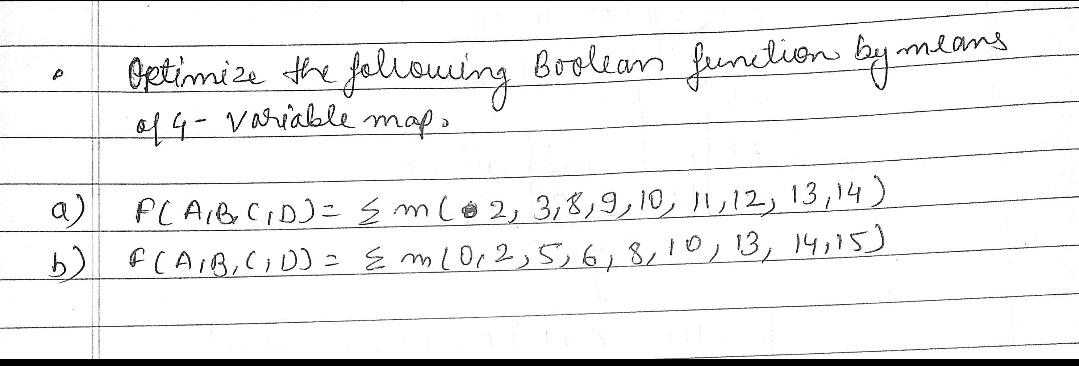 Optimize the following Boolean function by means
of 4- variable map.
a) F(A,B,C,D)= Σ m( 2, 3,8,9,10, 11,12, 13,14)
b) F(A,B,C,D) = Σ m(0,2,5,6,8,10,13, 14,15)